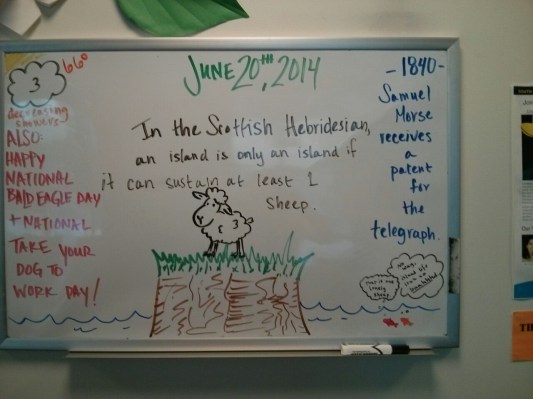 JUNE 20TH, 2014
66°
3
decreasing
showers
ALSO:
HAPPY
NATIONAL
BALD EAGLE DAY
+ NATIONAL
TAKE YOUR
DOG TO
WORK DAY!
In the Scottish Hebridesian,
an island is only an island if
it can sustain at least 1
sheep.
-1840-
Samuel
Morse
receives
a
patent
for
the
telegraph.